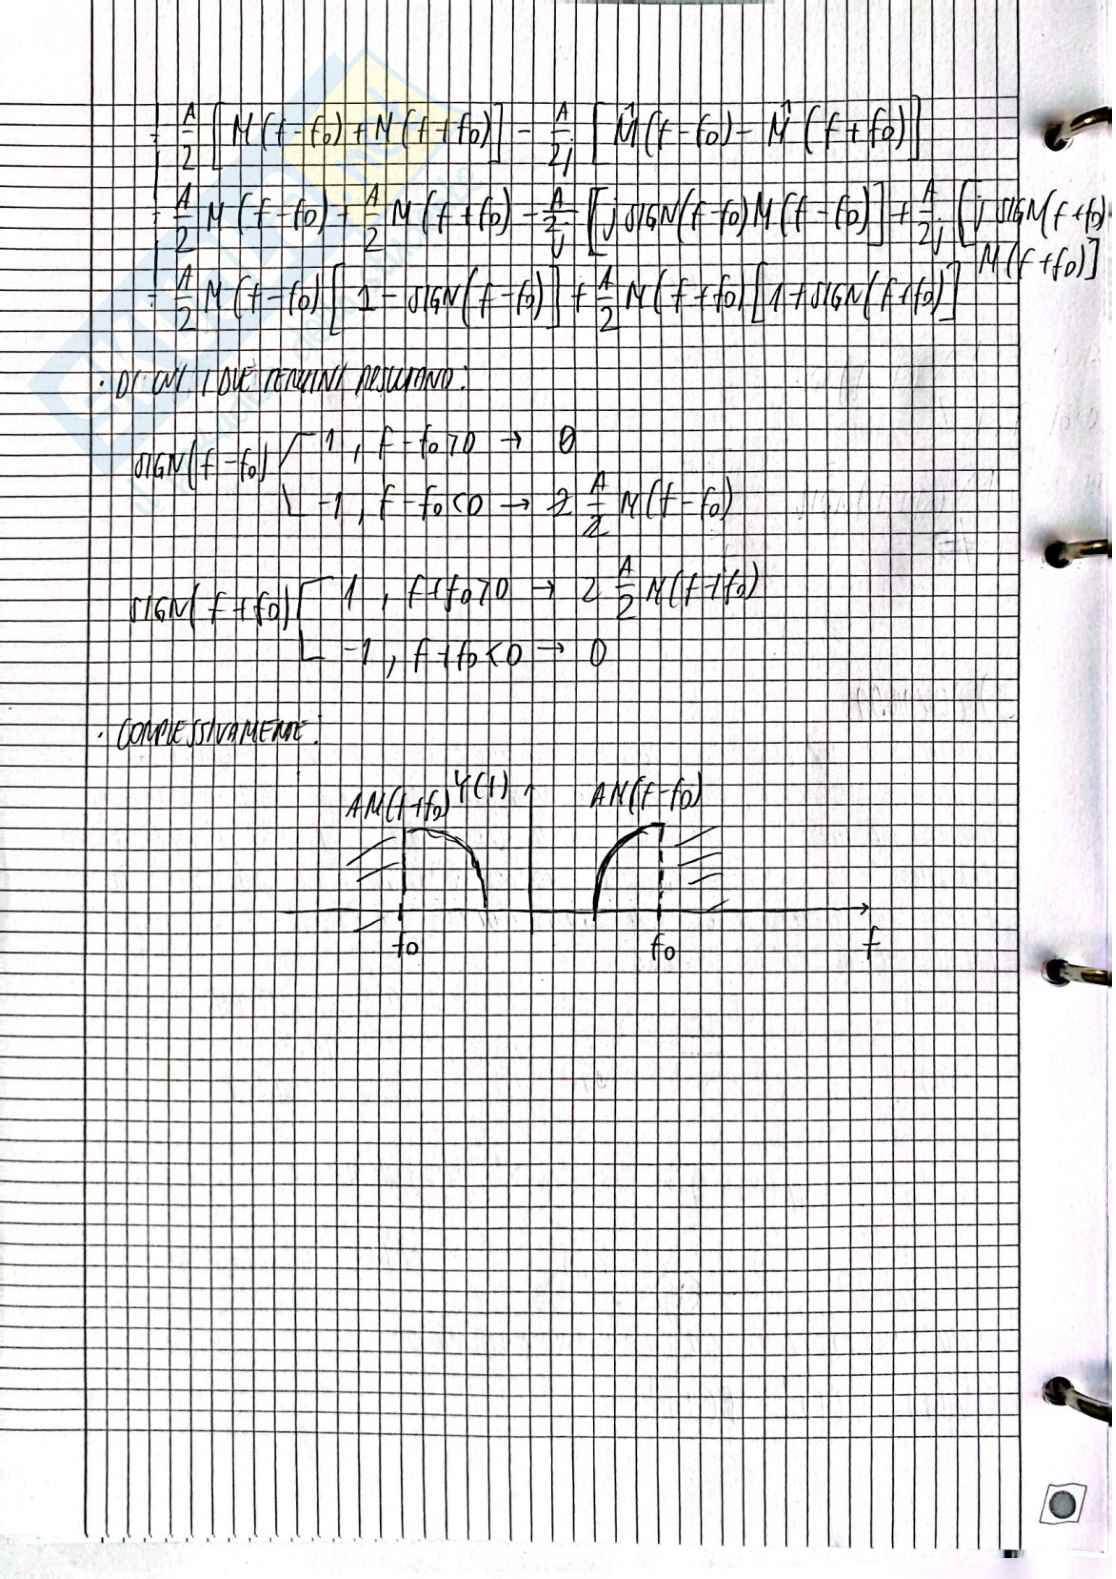 = A/2 [M(f-f0) + M(f+f0)] - A/2j [M̂(f-f0) - M̂(f+f0)]
= A/2 M(f-f0) + A/2 M(f+f0) - A/2j [j SIGN(f-f0) M(f-f0)] + A/2j [j SIGN(f+f0)·
M(f+f0)]
= A/2 M(f-f0) [1 - SIGN(f-f0)] + A/2 M(f+f0) [1 + SIGN(f+f0)]
· DI CUI I DUE TERMINI RISULTANO:
SIGN(f-f0) 1, f-f0>0 → 0
-1, f-f0<0 → 2 A/2 M(f-f0)
SIGN(f+f0) 1, f+f0>0 → 2 A/2 M(f+f0)
-1, f+f0<0 → 0
· COMPLESSIVAMENTE:
AM(f+f0) Y(f) AM(f-f0)
f0 f0 f